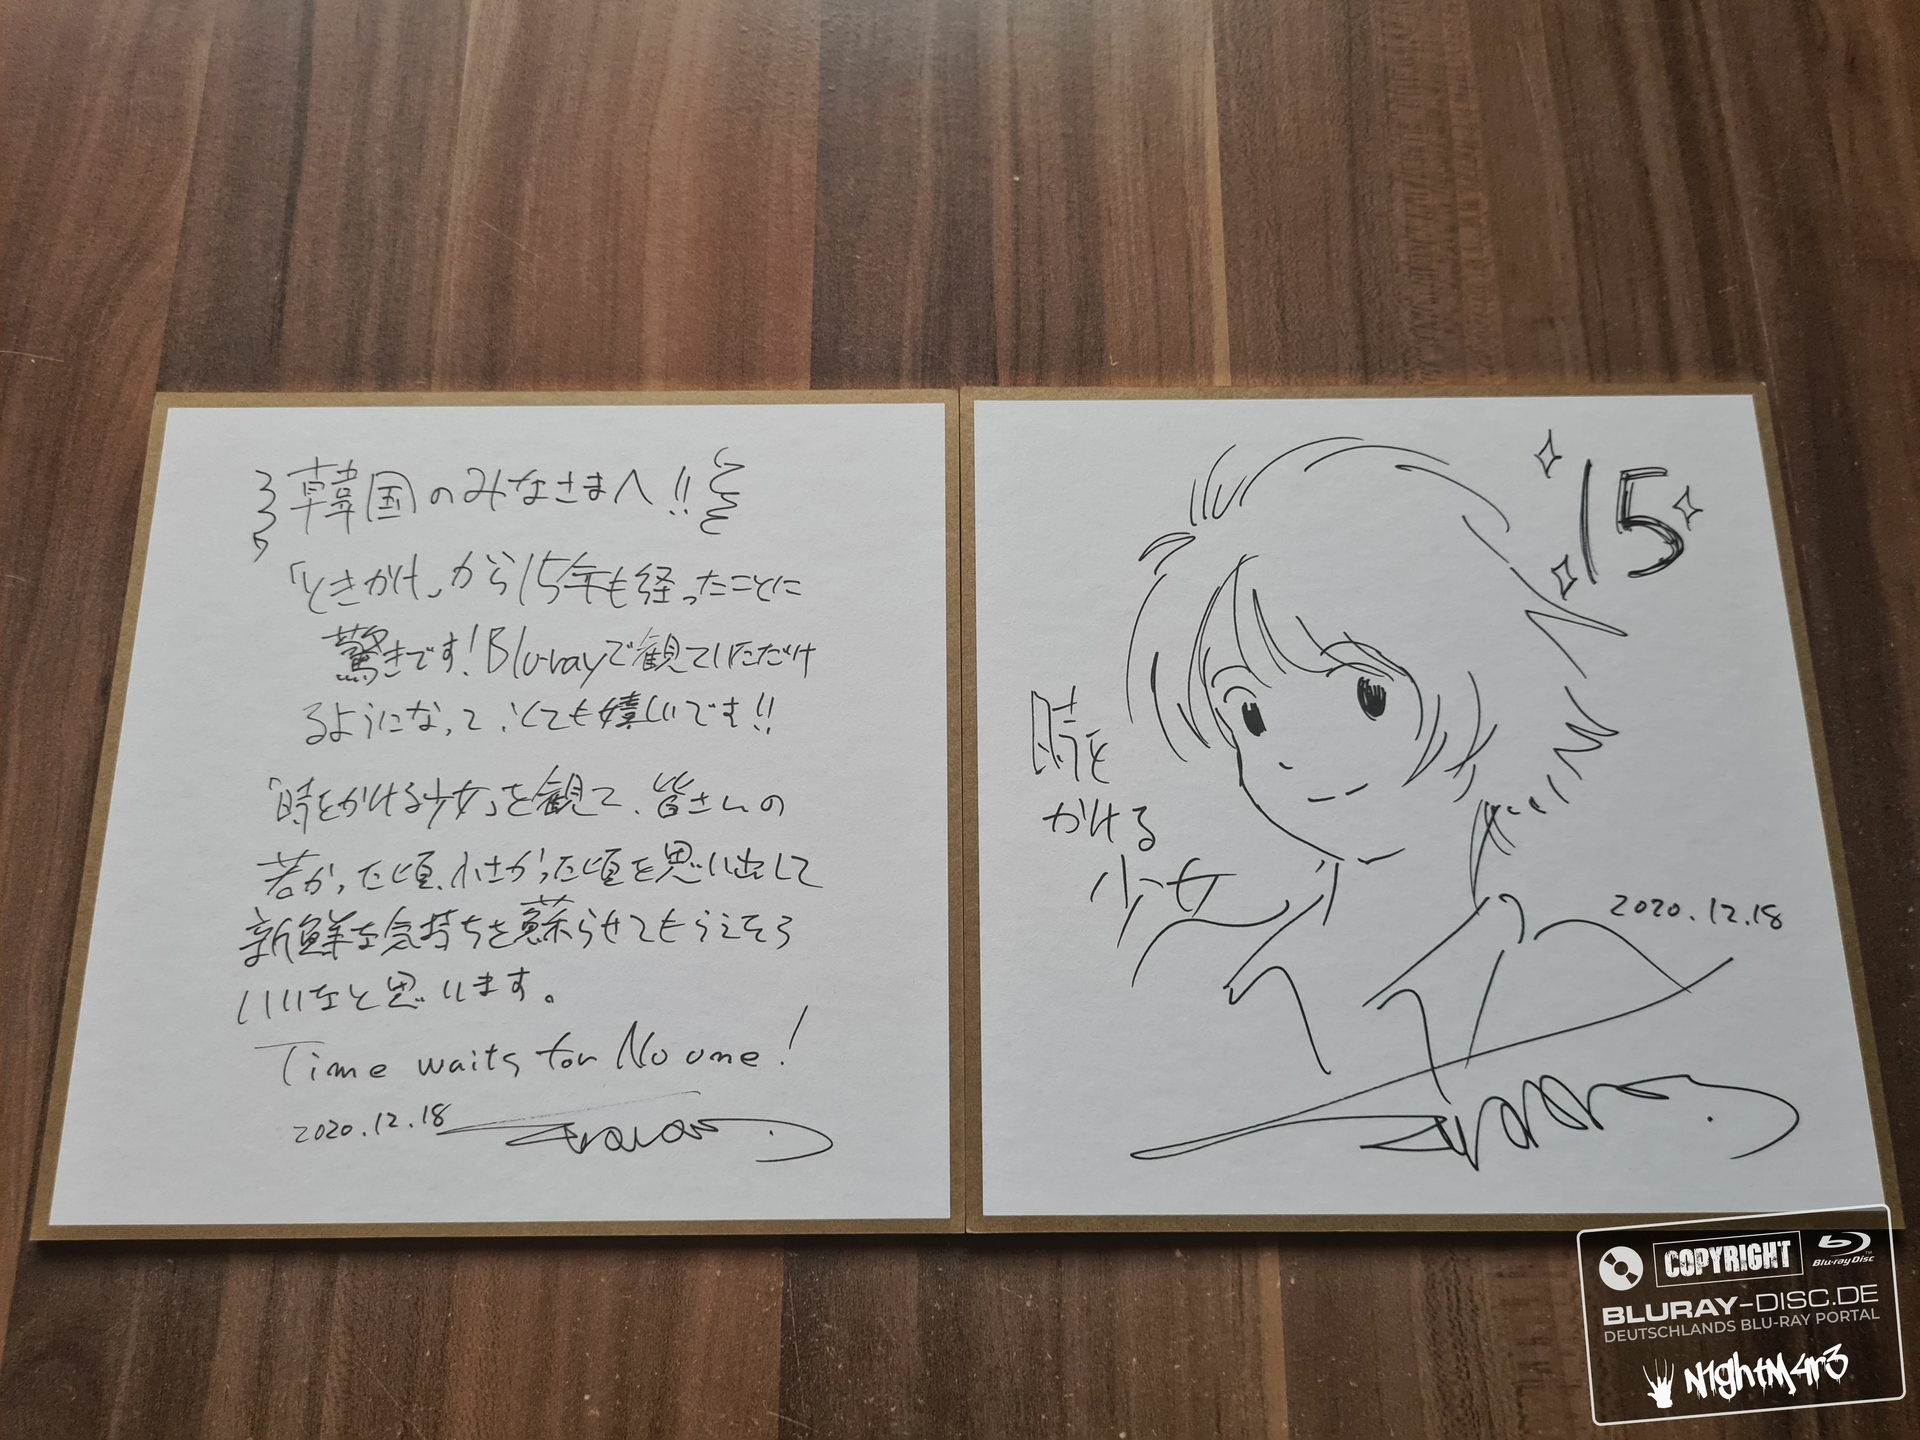 韓国のみなさまへ!!
「ときかけ」から15年も経ったことに
驚きです!Blu-rayで観ていただけ
るようになって、とても嬉しいです!!
「時をかける少女」を観て、皆さんの
若かった頃、小さかった頃を思い出して
新鮮な気持ちを蘇らせてもらえそう
いいなと思います。
Time waits for No one!
2020.12.18
15
時を
かける
少女
2020.12.18
COPYRIGHT
Blu-ray Disc
BLURAY-DISC.DE
DEUTSCHLANDS BLU-RAY PORTAL
N1ghtM4r3